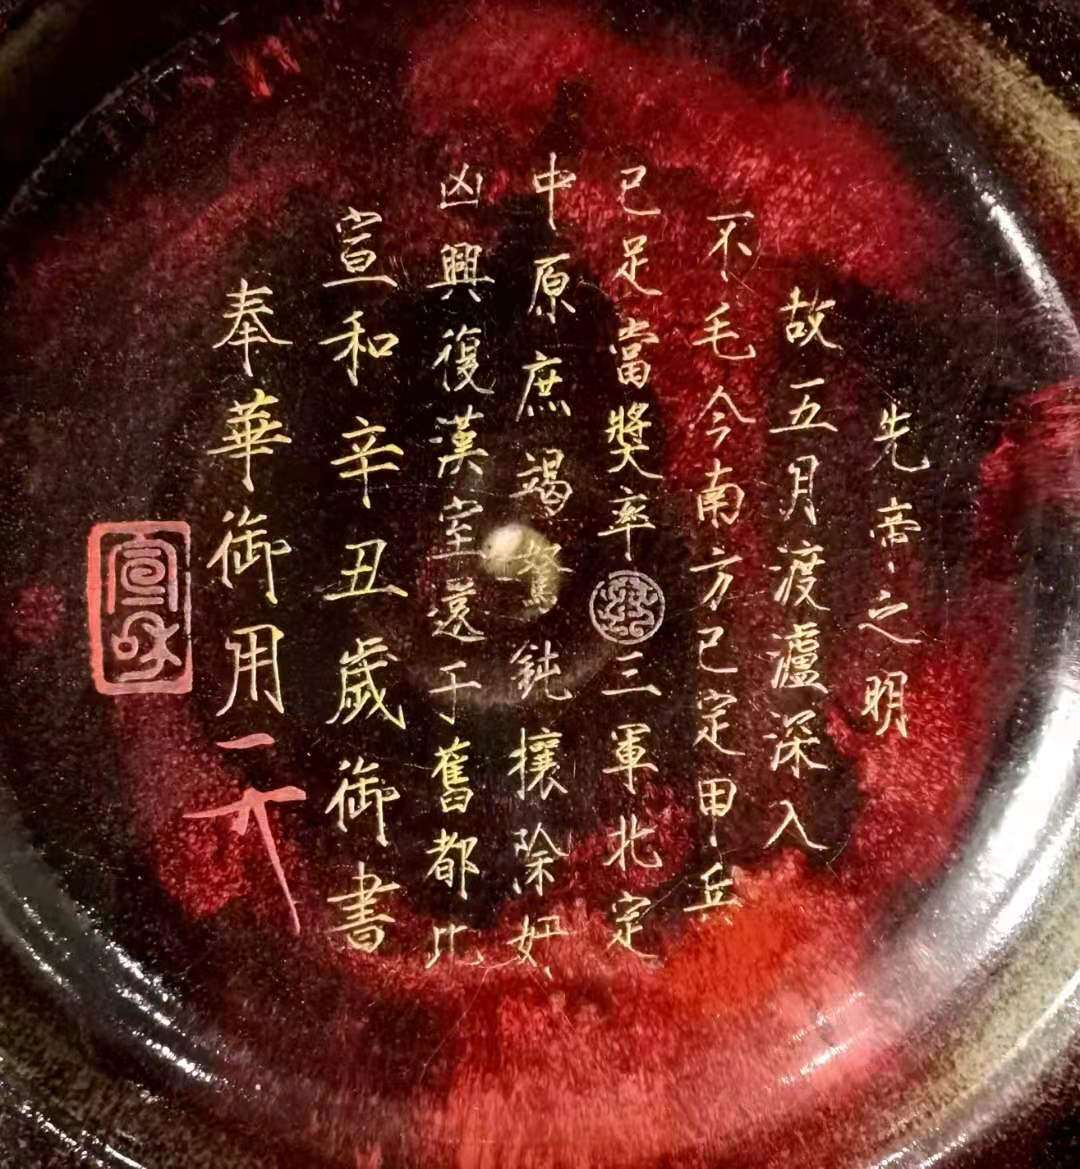 先帝之明
故五月渡瀘深入
不毛今南方已定甲兵
已足當獎率三軍北定
中原庶竭駑鈍攘除奸
凶興復漢室還于舊都此
宣和辛丑歲御書
奉華御用
宣和